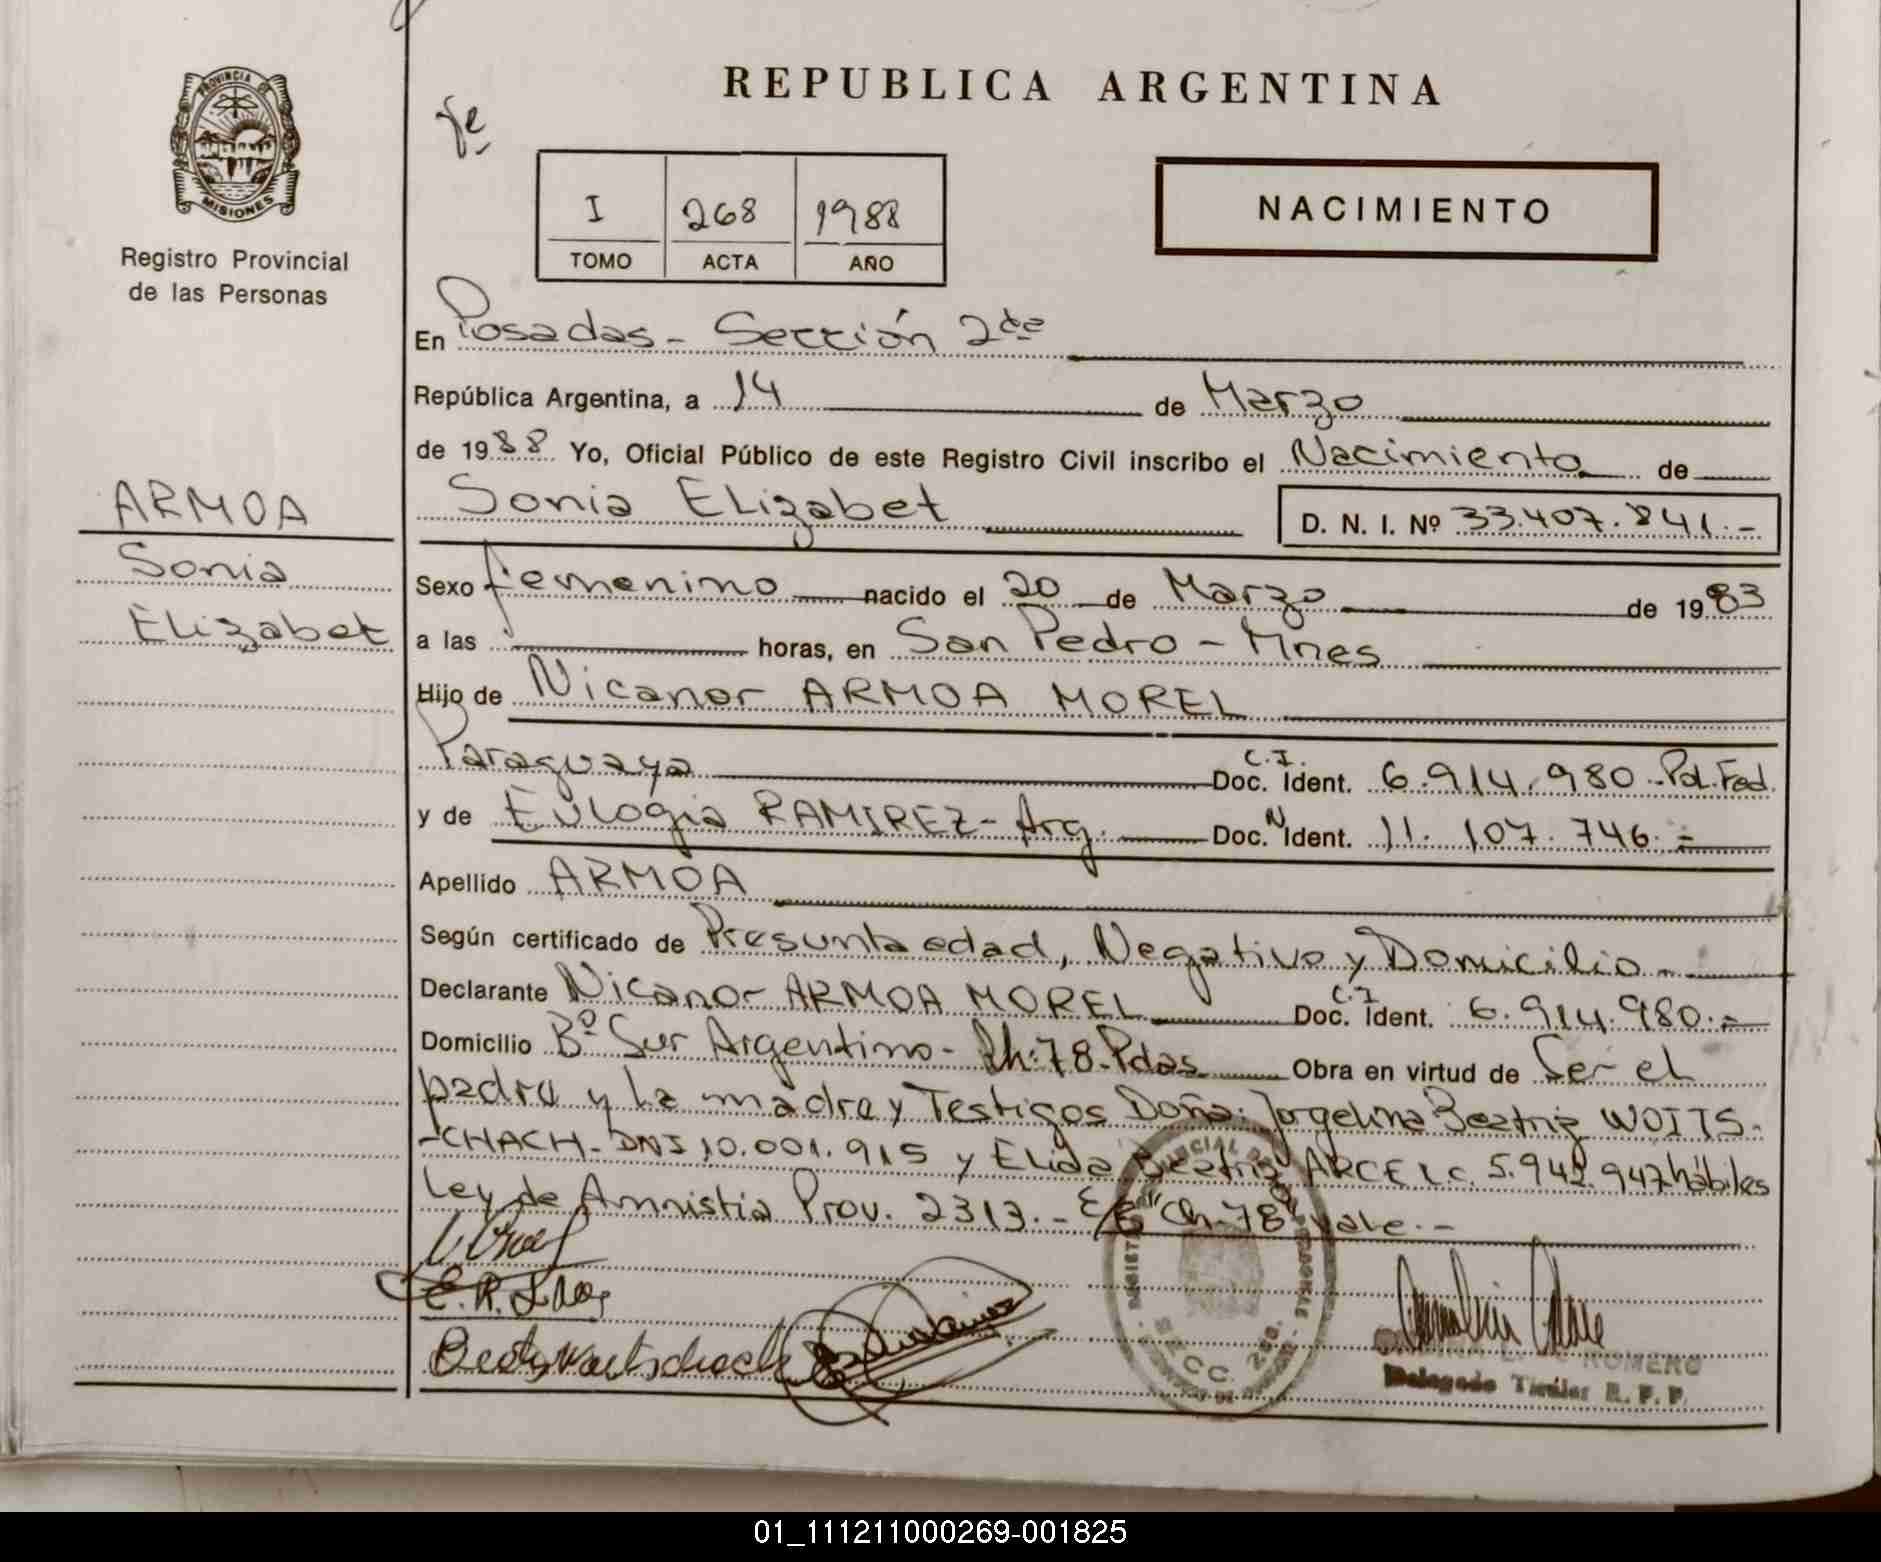 REPUBLICA ARGENTINA
PROVINCIA DE
MISIONES
Registro Provincial
de las Personas
I 268 1988
TOMO ACTA AÑO
NACIMIENTO
En Posadas - Sección 2da
República Argentina, a 14 de Marzo
de 1988 Yo, Oficial Público de este Registro Civil inscribo el Nacimiento de
ARMOA
Sonia
Elizabet
Sonia ELizabet D. N. I. Nº 33.407.841.-
Sexo femenino nacido el 20 de Marzo de 1983
a las horas, en San Pedro - Mnes
Hijo de Nicanor ARMOA MOREL
Paraguaya C.I. Doc. Ident. 6.914.980 Pol. Fed.
y de Eulogia RAMIREZ - Arg. Doc. N Ident. 11.107.746.-
Apellido ARMOA
Según certificado de Presunta edad, Negativo y Domicilio.-
Declarante Nicanor ARMOA MOREL C.I Doc. Ident. 6.914.980.-
Domicilio Bº Sur Argentino - Ch:78-Pdas Obra en virtud de Ser el
padre y La madre y Testigos Doña: Jorgelina Beatriz WOITS-
-CHACH - DNI 10.001.915 y Elida Beatriz ARCE L.C. 5.942.947 hábiles
Ley de Amnistia Prov. 2313.- E/E "Ch-78" vale.-
ROMERO
Delegado Titular R. P. P.
01_111211000269-001825